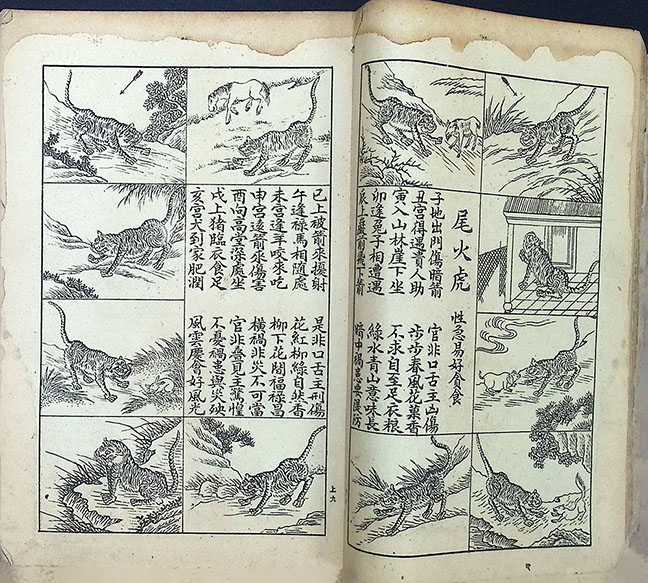 尾火虎
性急易好貪食
子地出門傷暗箭
官非口舌主凶傷
丑宮得遇貴人助
步步春風花菓香
寅入山林崖下坐
不求自至足衣粮
卯逢兔子相遭遇
綠水青山意味長
辰上
暗中禍患要提防
巳上被箭來援射
是非口舌主刑傷
午逢祿馬相隨處
花紅柳綠自然香
未宮逢羊咬來吃
柳下花開福祿昌
申宮遠箭來傷害
橫禍非災不可當
酉向高堂深處坐
官非疊見主驚惶
戌上猪臨衣食足
不憂禍患與災殃
亥宮犬到家肥潤
風雲慶會好風光
上